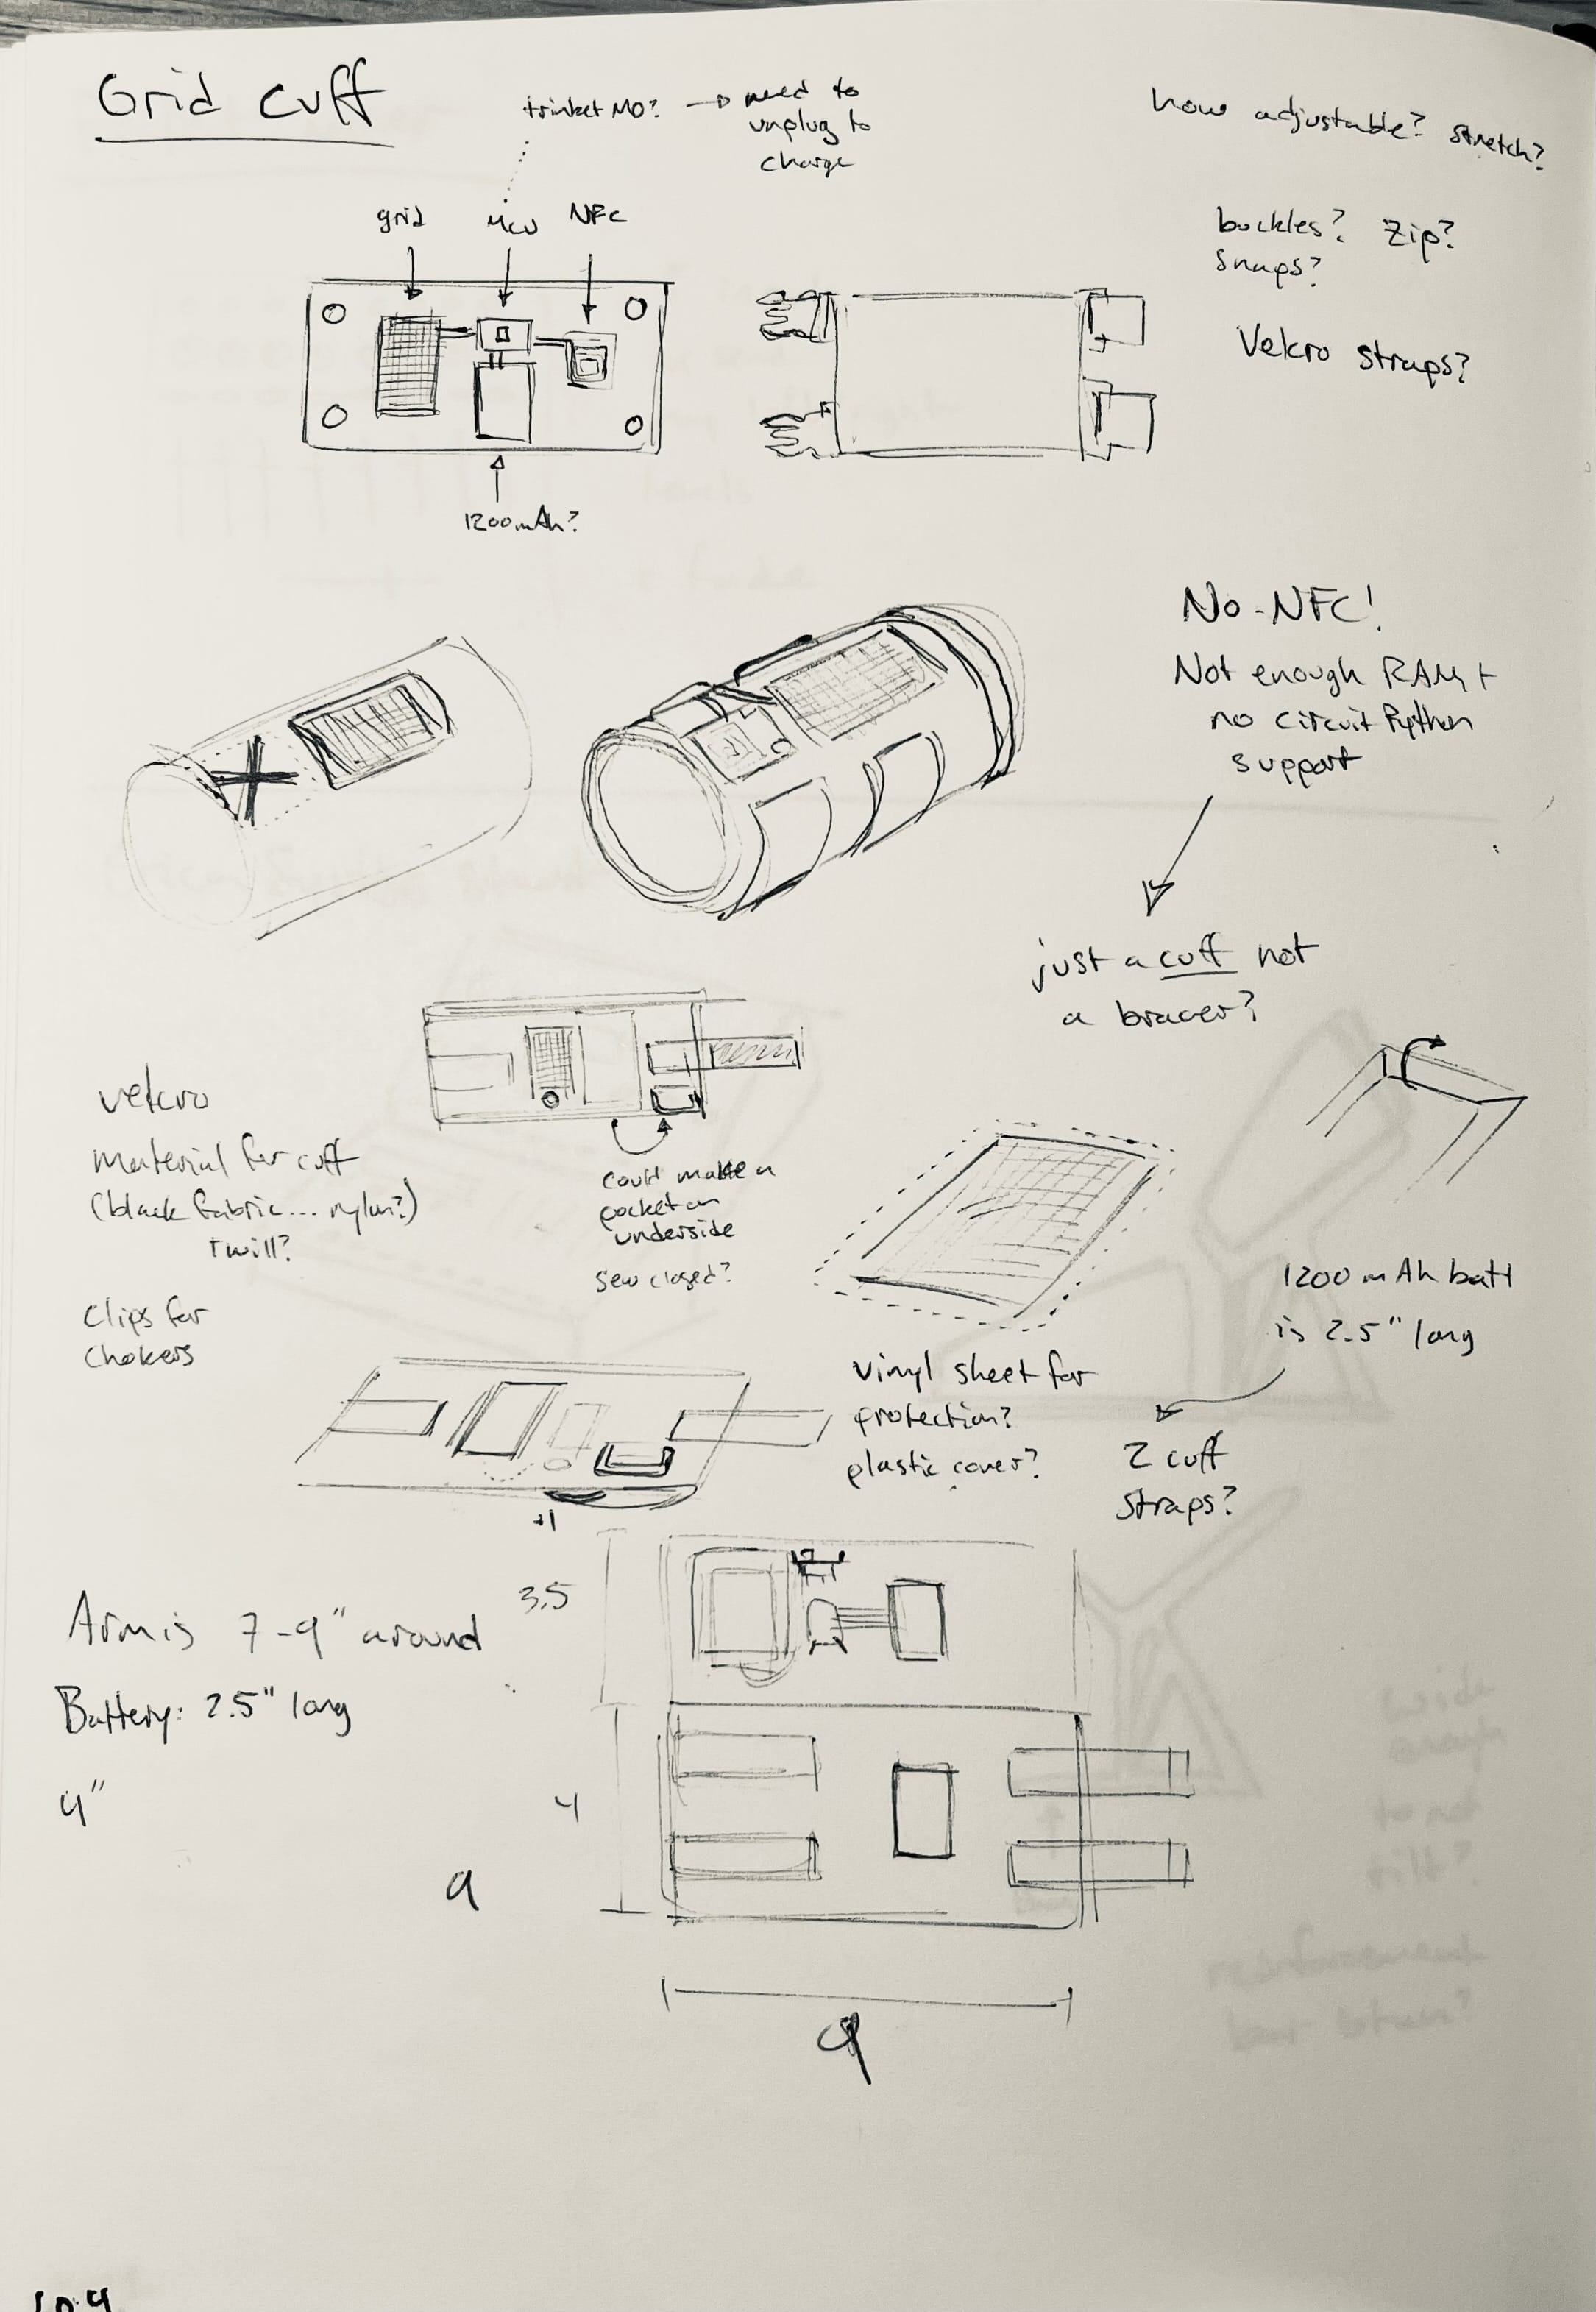 Grid cuff
trinket M0? → need to
unplug to
charge
how adjustable? stretch?
grid
MCU
NFC
buckles? Zip?
snaps?
Velcro straps?
1200mAh?
No NFC!
Not enough RAM +
no circuit Python
support
just a cuff not
a bracer?
velcro
material for cuff
(black fabric... nylon?)
twill?
could make a
pocket on
underside
sew closed?
clips for
chokers
1200 mAh batt
is 2.5" long
vinyl sheet for
protection?
plastic cover?
2 cuff
straps?
+1
3.5
Arm is 7-9" around
Battery: 2.5" long
4
9
9
wide
enough
to not
tilt?
reinforcement